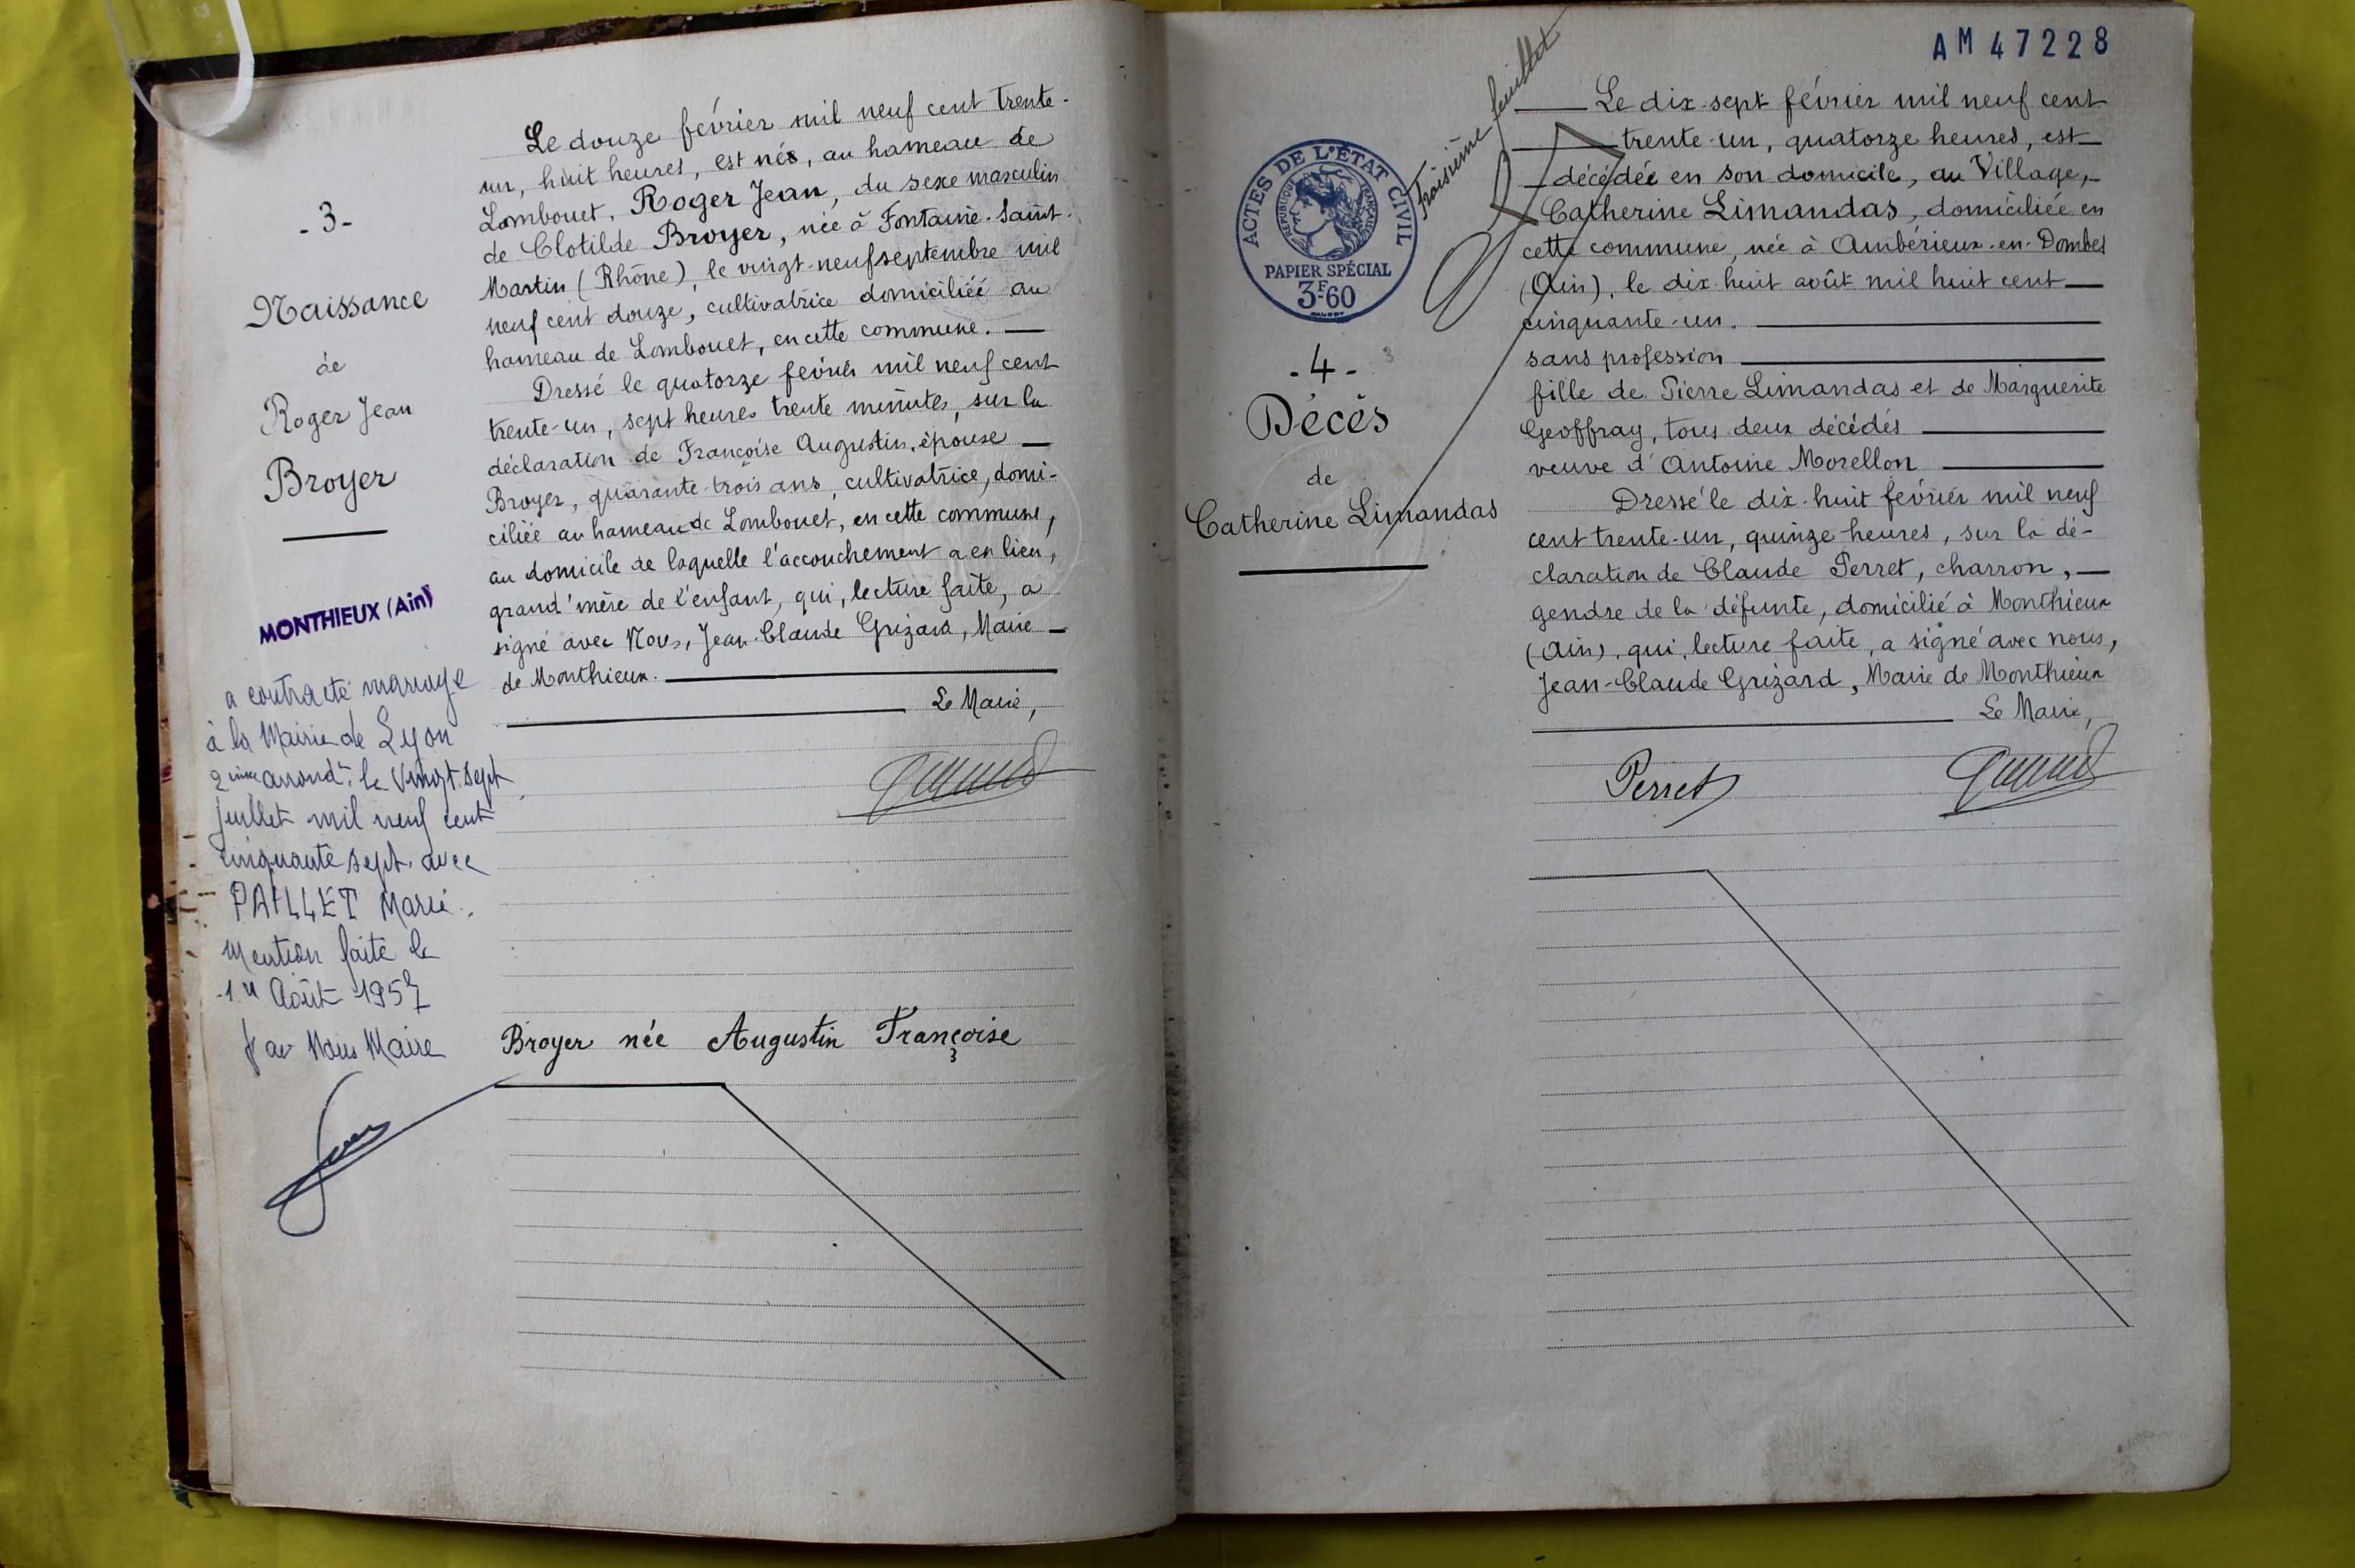 - 3 -
Naissance
de
Roger Jean
Broyer
MONTHIEUX (Ain)
a contracté mariage
à la Mairie de Lyon
2ème arrondt. le Vingt-sept
juillet mil neuf cent
cinquante sept. avec
PAILLET Marie.
Mention faite le
1er Août 1957
par Nous Maire
Le douze février mil neuf cent trente-
un, huit heures, est né, au hameau de
Lombouet, Roger Jean, du sexe masculin
de Clotilde Broyer, née à Fontaine-Saint-
Martin (Rhône), le vingt-neuf septembre mil
neuf cent douze, cultivatrice domiciliée au
hameau de Lombouet, en cette commune.
Dressé le quatorze février mil neuf cent
trente-un, sept heures trente minutes, sur la
déclaration de Françoise Augustin, épouse
Broyer, quarante-trois ans, cultivatrice, domi-
ciliée au hameau de Lombouet, en cette commune,
au domicile de laquelle l'accouchement a eu lieu,
grand'mère de l'enfant, qui, lecture faite, a
signé avec Nous, Jean-Claude Grizard, Maire
de Monthieux.
Le Maire,
Broyer née Augustin Françoise
AM 47228
Troisième feuillet
ACTES DE L'ÉTAT CIVIL
REPUBLIQUE FRANÇAISE
PAPIER SPÉCIAL
3F60
- 4 - 3
Décès
de
Catherine Limandas
Le dix-sept février mil neuf cent
trente-un, quatorze heures, est
décédée en son domicile, au Village,
Catherine Limandas, domiciliée en
cette commune, née à Ambérieux-en-Dombes
(Ain), le dix-huit août mil huit cent
cinquante-un.
sans profession
fille de Pierre Limandas et de Marguerite
Geoffray, tous deux décédés
veuve d'Antoine Morellon
Dressé le dix-huit février mil neuf
cent trente-un, quinze heures, sur la dé-
claration de Claude Perret, charron,
gendre de la défunte, domicilié à Monthieux
(Ain), qui, lecture faite, a signé avec nous,
Jean-Claude Grizard, Maire de Monthieux
Le Maire,
Perret